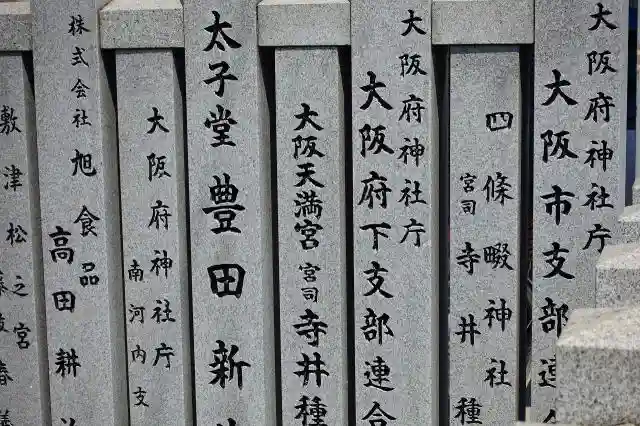 大阪府神社庁
大阪市支部連
四條畷神社
宮司 寺井種
大阪府神社庁
大阪府下支部連合
大阪天満宮
宮司 寺井種
太子堂 豊田新
大阪府神社庁
南河内支
株式会社 旭食品
高田耕
敷津松之宮